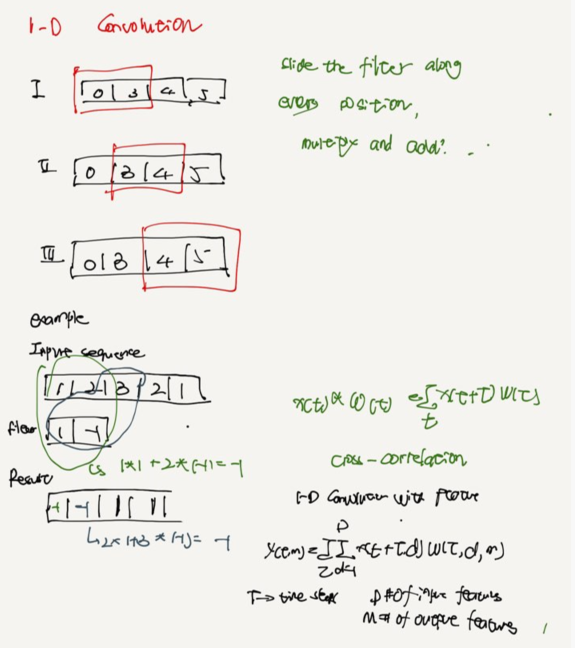 1-D Convolution
I 0 | 3 | 4 | 5
II 0 | 3 | 4 | 5
III 0 | 3 | 4 | 5
Slide the filter along
every position,
multiply and add!
example
Input sequence
1 | 2 | 3 | 2 | 1
filter 1 | -1
↳ 1*1 + 2*(-1) = -1
Result
-1 | -1 | 1 | 1
↳ 2*1+3*(-1) = -1
x(t) * w(t) = ∑ x(t+τ) w(τ)
τ
cross-correlation
1-D Convolution with feature
D
y(t,m) = ∑∑ x(t+τ,d) w(τ,d,m)
τ d=1
T → time step
D # of input features
M # of output features